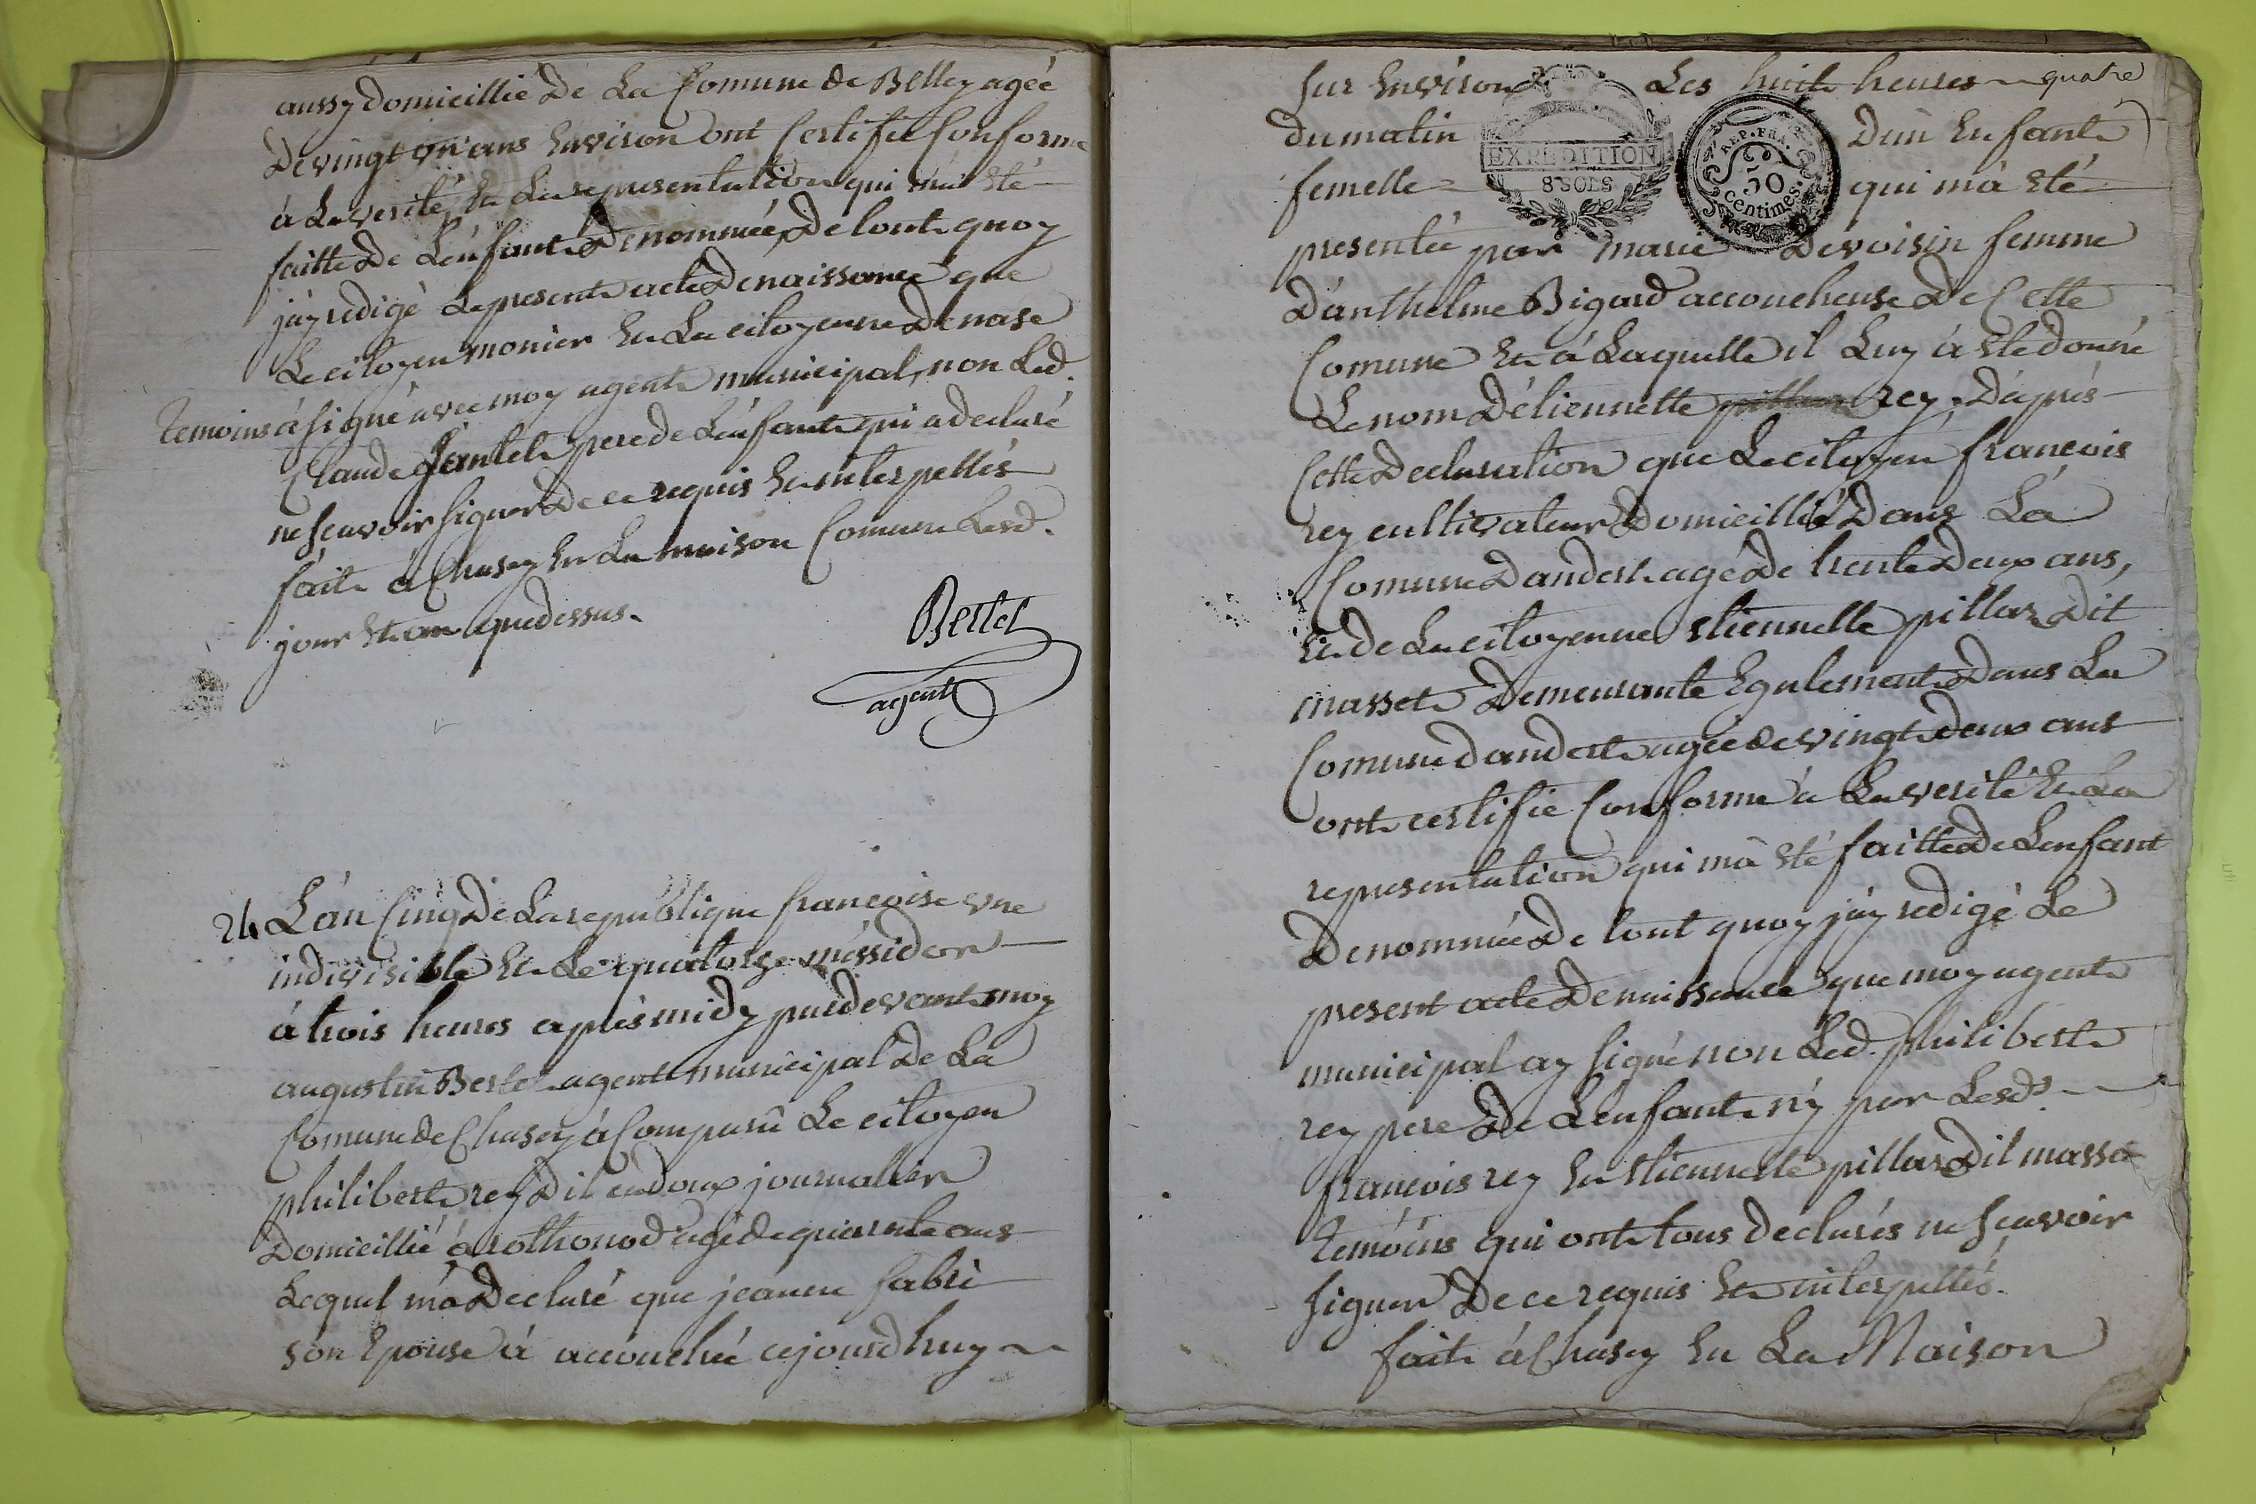 aussy domicillié de La Comune de Belley agéé
de vingt un ans Environ ont Certifié Conforme
à La verité Et La representation qui m'a Eté
faitte de L'énfant dénommée, de tout quoy
j'ay redigé Le present acte de naissance que
Le citoyen monier Et La citoyenne Dnase
temoins á signé avec moy agent municipal, non Led.
Claude Jantet pere de L'énfant qui a declaré
ne scavoir signer de ce requis Et interpellés
fait á Chasey En La maison Comune Lesd.
jour Et an que dessus.
Bertet
agent
24 L'án Cinq De La republique francoise une
indivisible Et Le quatorze méssidor
á trois heures aprés midy pardevant moy
augustin Bertet agent municipal De La
Comune de Chasey á Comparû Le citoyen
philibert rey dit cadoux journalier
Domicillié á rothonod agé de quarente ans
Lequel m'á Declaré que jeanne fabri
son Epouse á accouchée cejourd'huy
sur Environ Les huit heures quatre
du matin D'un Enfant
EXPEDITION
8 SOLS
REP. FRA.
50
centimes.
femelle = qui m'á Eté
presentée par marie Devoisin femme
D'anthelme Bigard accoucheuse de Cette
Comune Et á Laquelle il Luy á Eté donné
Le nom D'étiennette rey, D'áprés
Cette Declaration que Le citoyen francois
rey cultivateur Domicillié Dans Lá
Comune Dandert agé de trente Deux ans,
Et de La citoyenne Etiennette pillaz Dit
masset Demeurante Egalement Dans La
Comune dandert agée de vingt deux ans
ont certifié Conforme á La verité Et La
representation qui m'á Eté faitte de L'enfant
Denommée De tout quoy j'ay redigé Le
present acte De naissance que moy agent
municipal ay signé non Led. philibert
rey pere De L'enfant n'y par Lesds
francois rey Et Etiennette pillaz Dit masset
témóins qui ont tous declarés ne scavoir
signer De ce requis Et interpellés.
fait á Chasey En La Maison